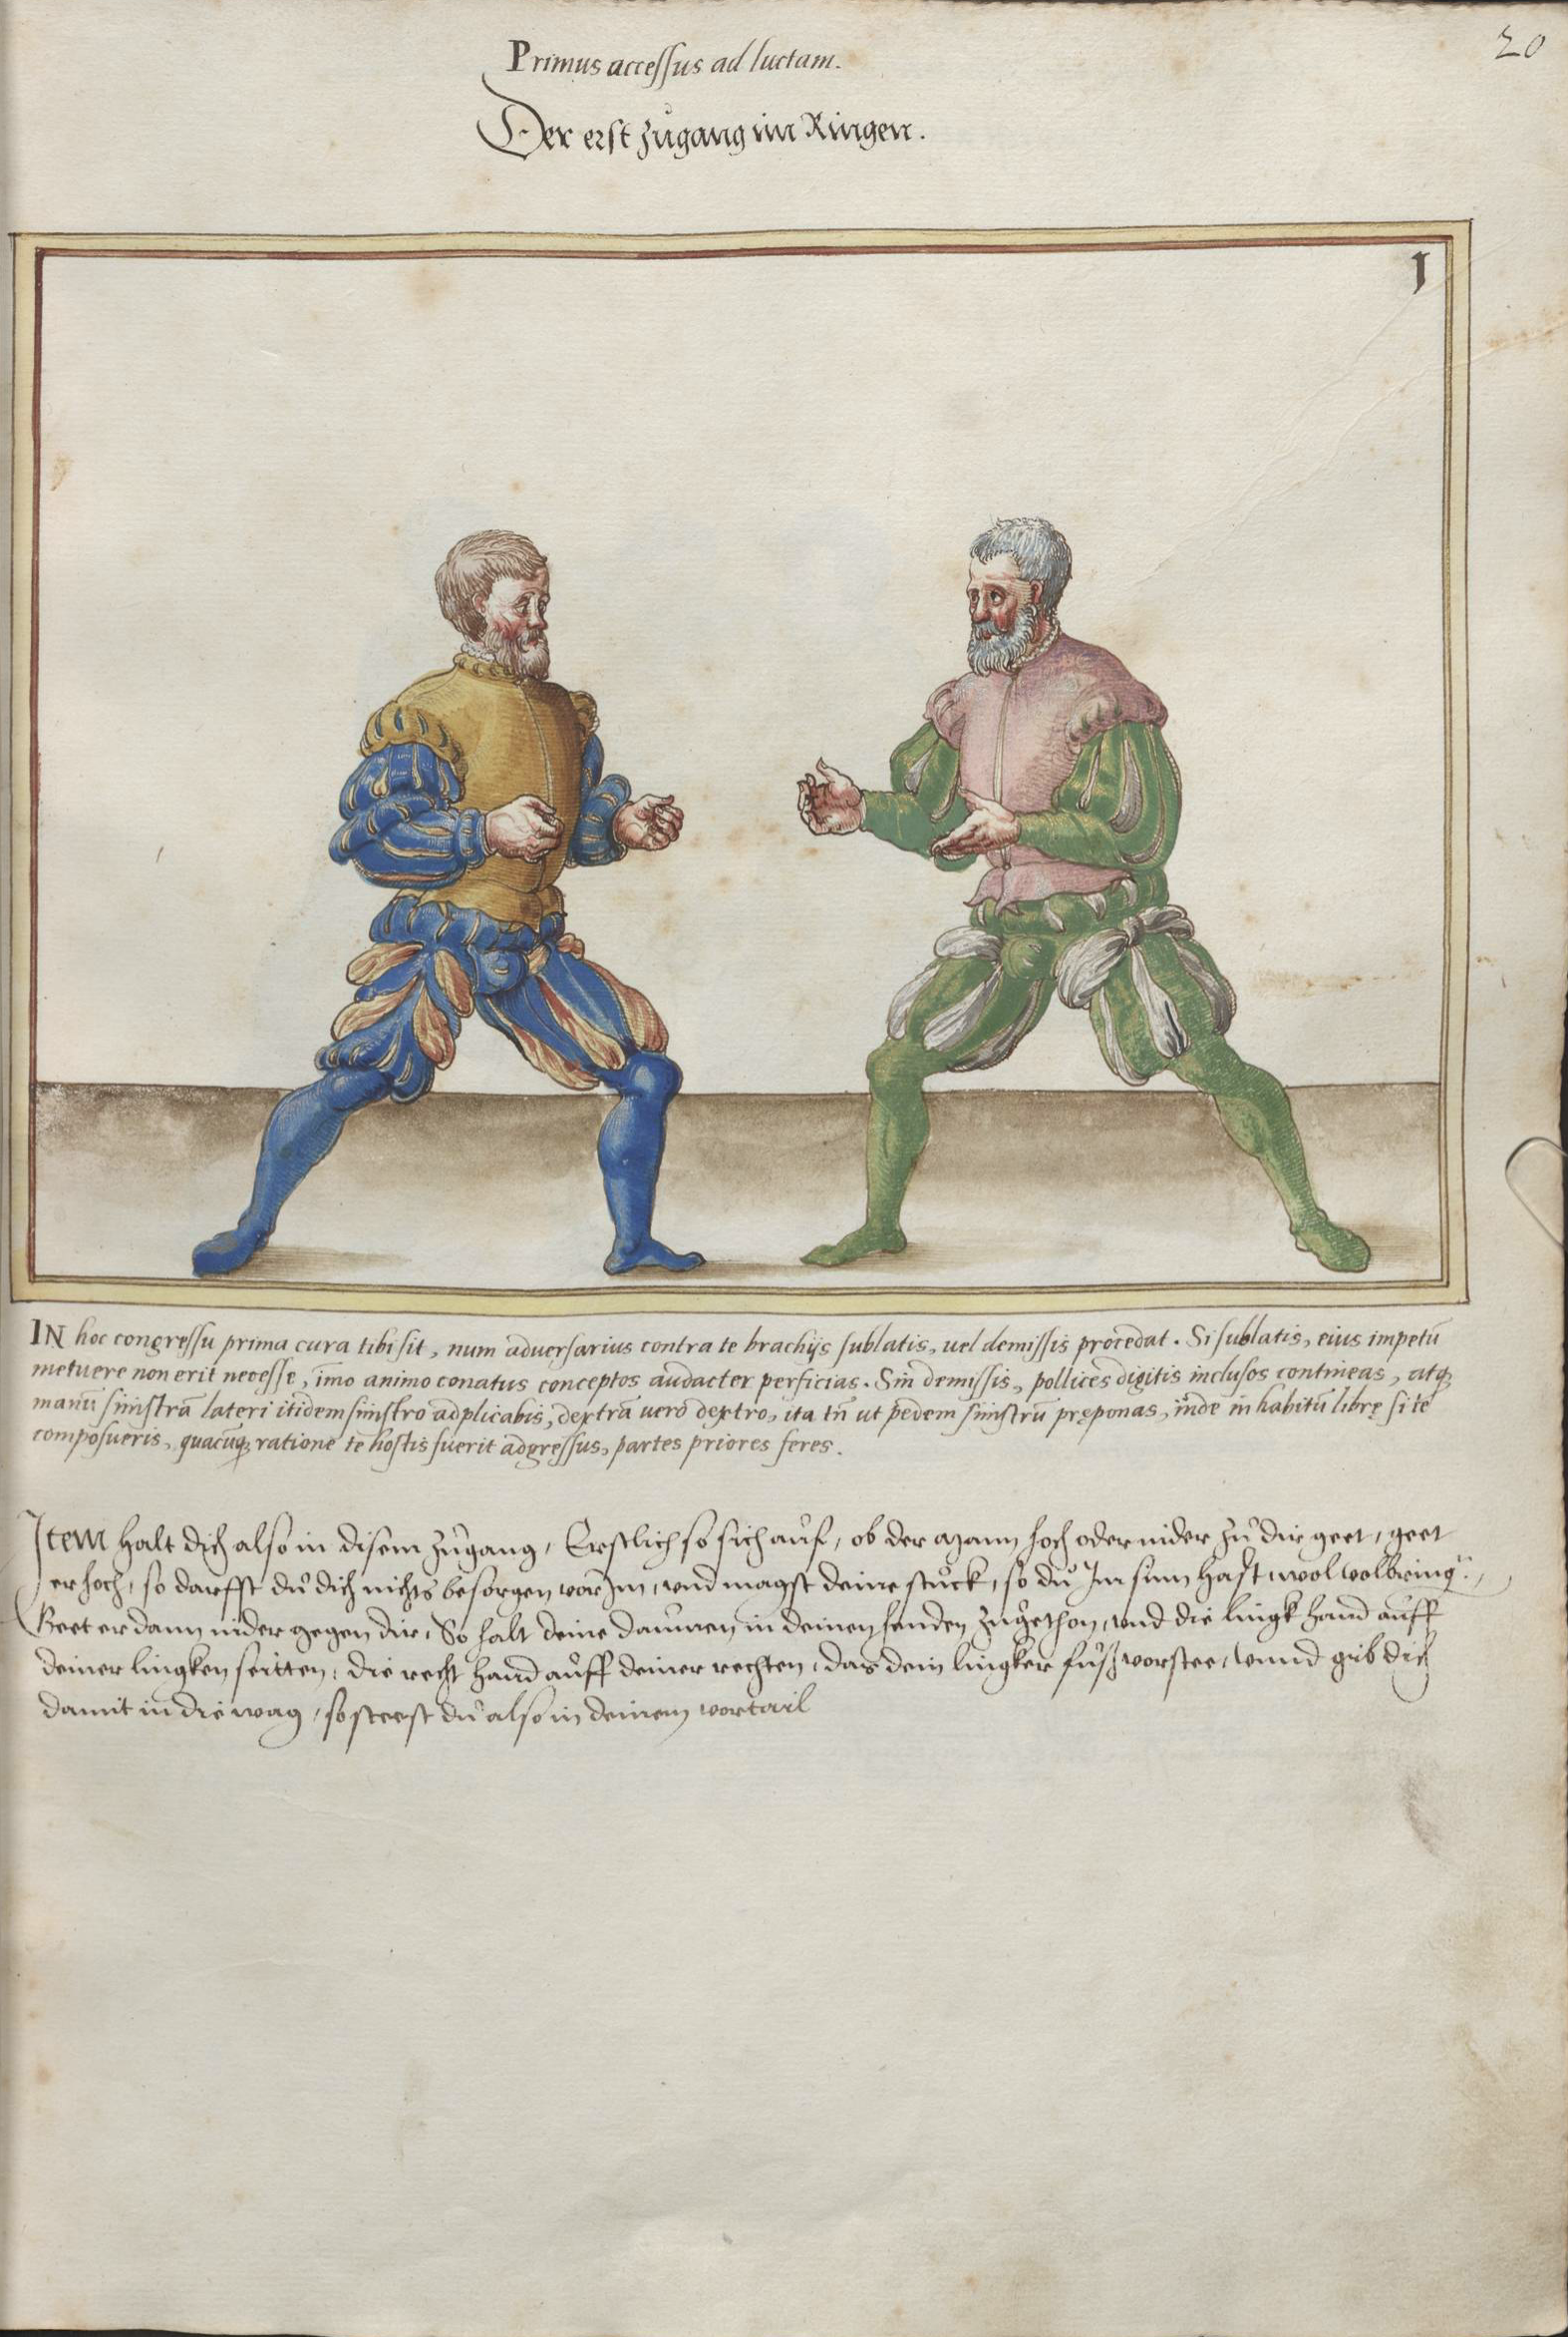 20
Primus accessus ad luctam.
Der erst Zůgang im Ringen.
1
IN hoc congressu prima cura tibi sit, num aduersarius contra te brachijs sublatis, uel demissis procedat. Si sublatis, eius impetū
metuere non erit necesse, īmo animo conatus conceptos audacter perficias. Sin demissis, pollices digitis inclusos contineas, atq;
manū sinistrā lateri itidem sinistro adplicabis, dextrā uero dextro, ita tñ ut pedem sinistrū pręponas, inde in habitū librę si te
composueris, quacūq; ratione te hostis fuerit adgressus, partes priores feres.
Item halt dich also in disem zůgang, Erstlich so sich aůf, ob der Mann hoch oder nider zů dir geet, geet
er hoch, so darfft dů dich nichts besorgen vor Im, vnd magst deine stuck, so dů Im sinn hast wol volbring
Geet er dann nider gegen dir, So halt deine daumen in deinen henden zůgethon, vnd die lingk hand aůff
deiner lingken seitten, die recht hand aůff deiner rechten, das dein lingker fůß vorstee, vnnd gib dich
damit in die wag, so steest dů also in deinem vortail